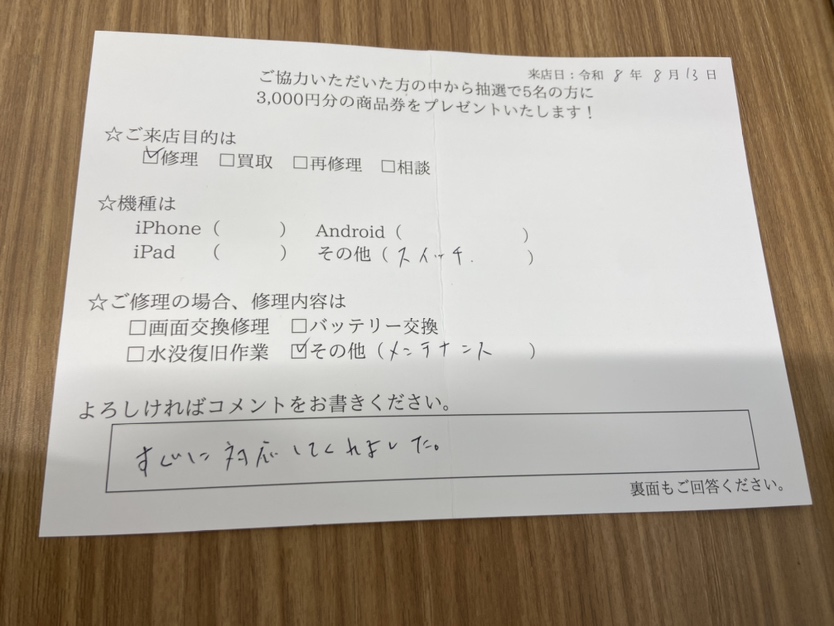 来店日:令和 8 年 8 月 13 日
ご協力いただいた方の中から抽選で5名の方に
3,000円分の商品券をプレゼントいたします!
☆ご来店目的は
☑修理 □買取 □再修理 □相談
☆機種は
iPhone( ) Android( )
iPad ( ) その他(スイッチ. )
☆ご修理の場合、修理内容は
□画面交換修理 □バッテリー交換
□水没復旧作業 ☑その他(メンテナンス )
よろしければコメントをお書きください。
すぐに対応してくれました。
裏面もご回答ください。